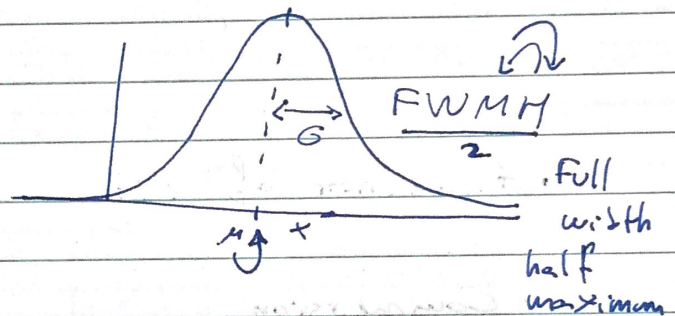 FWMH
2
σ
.Full
width
μ x
half
maximum